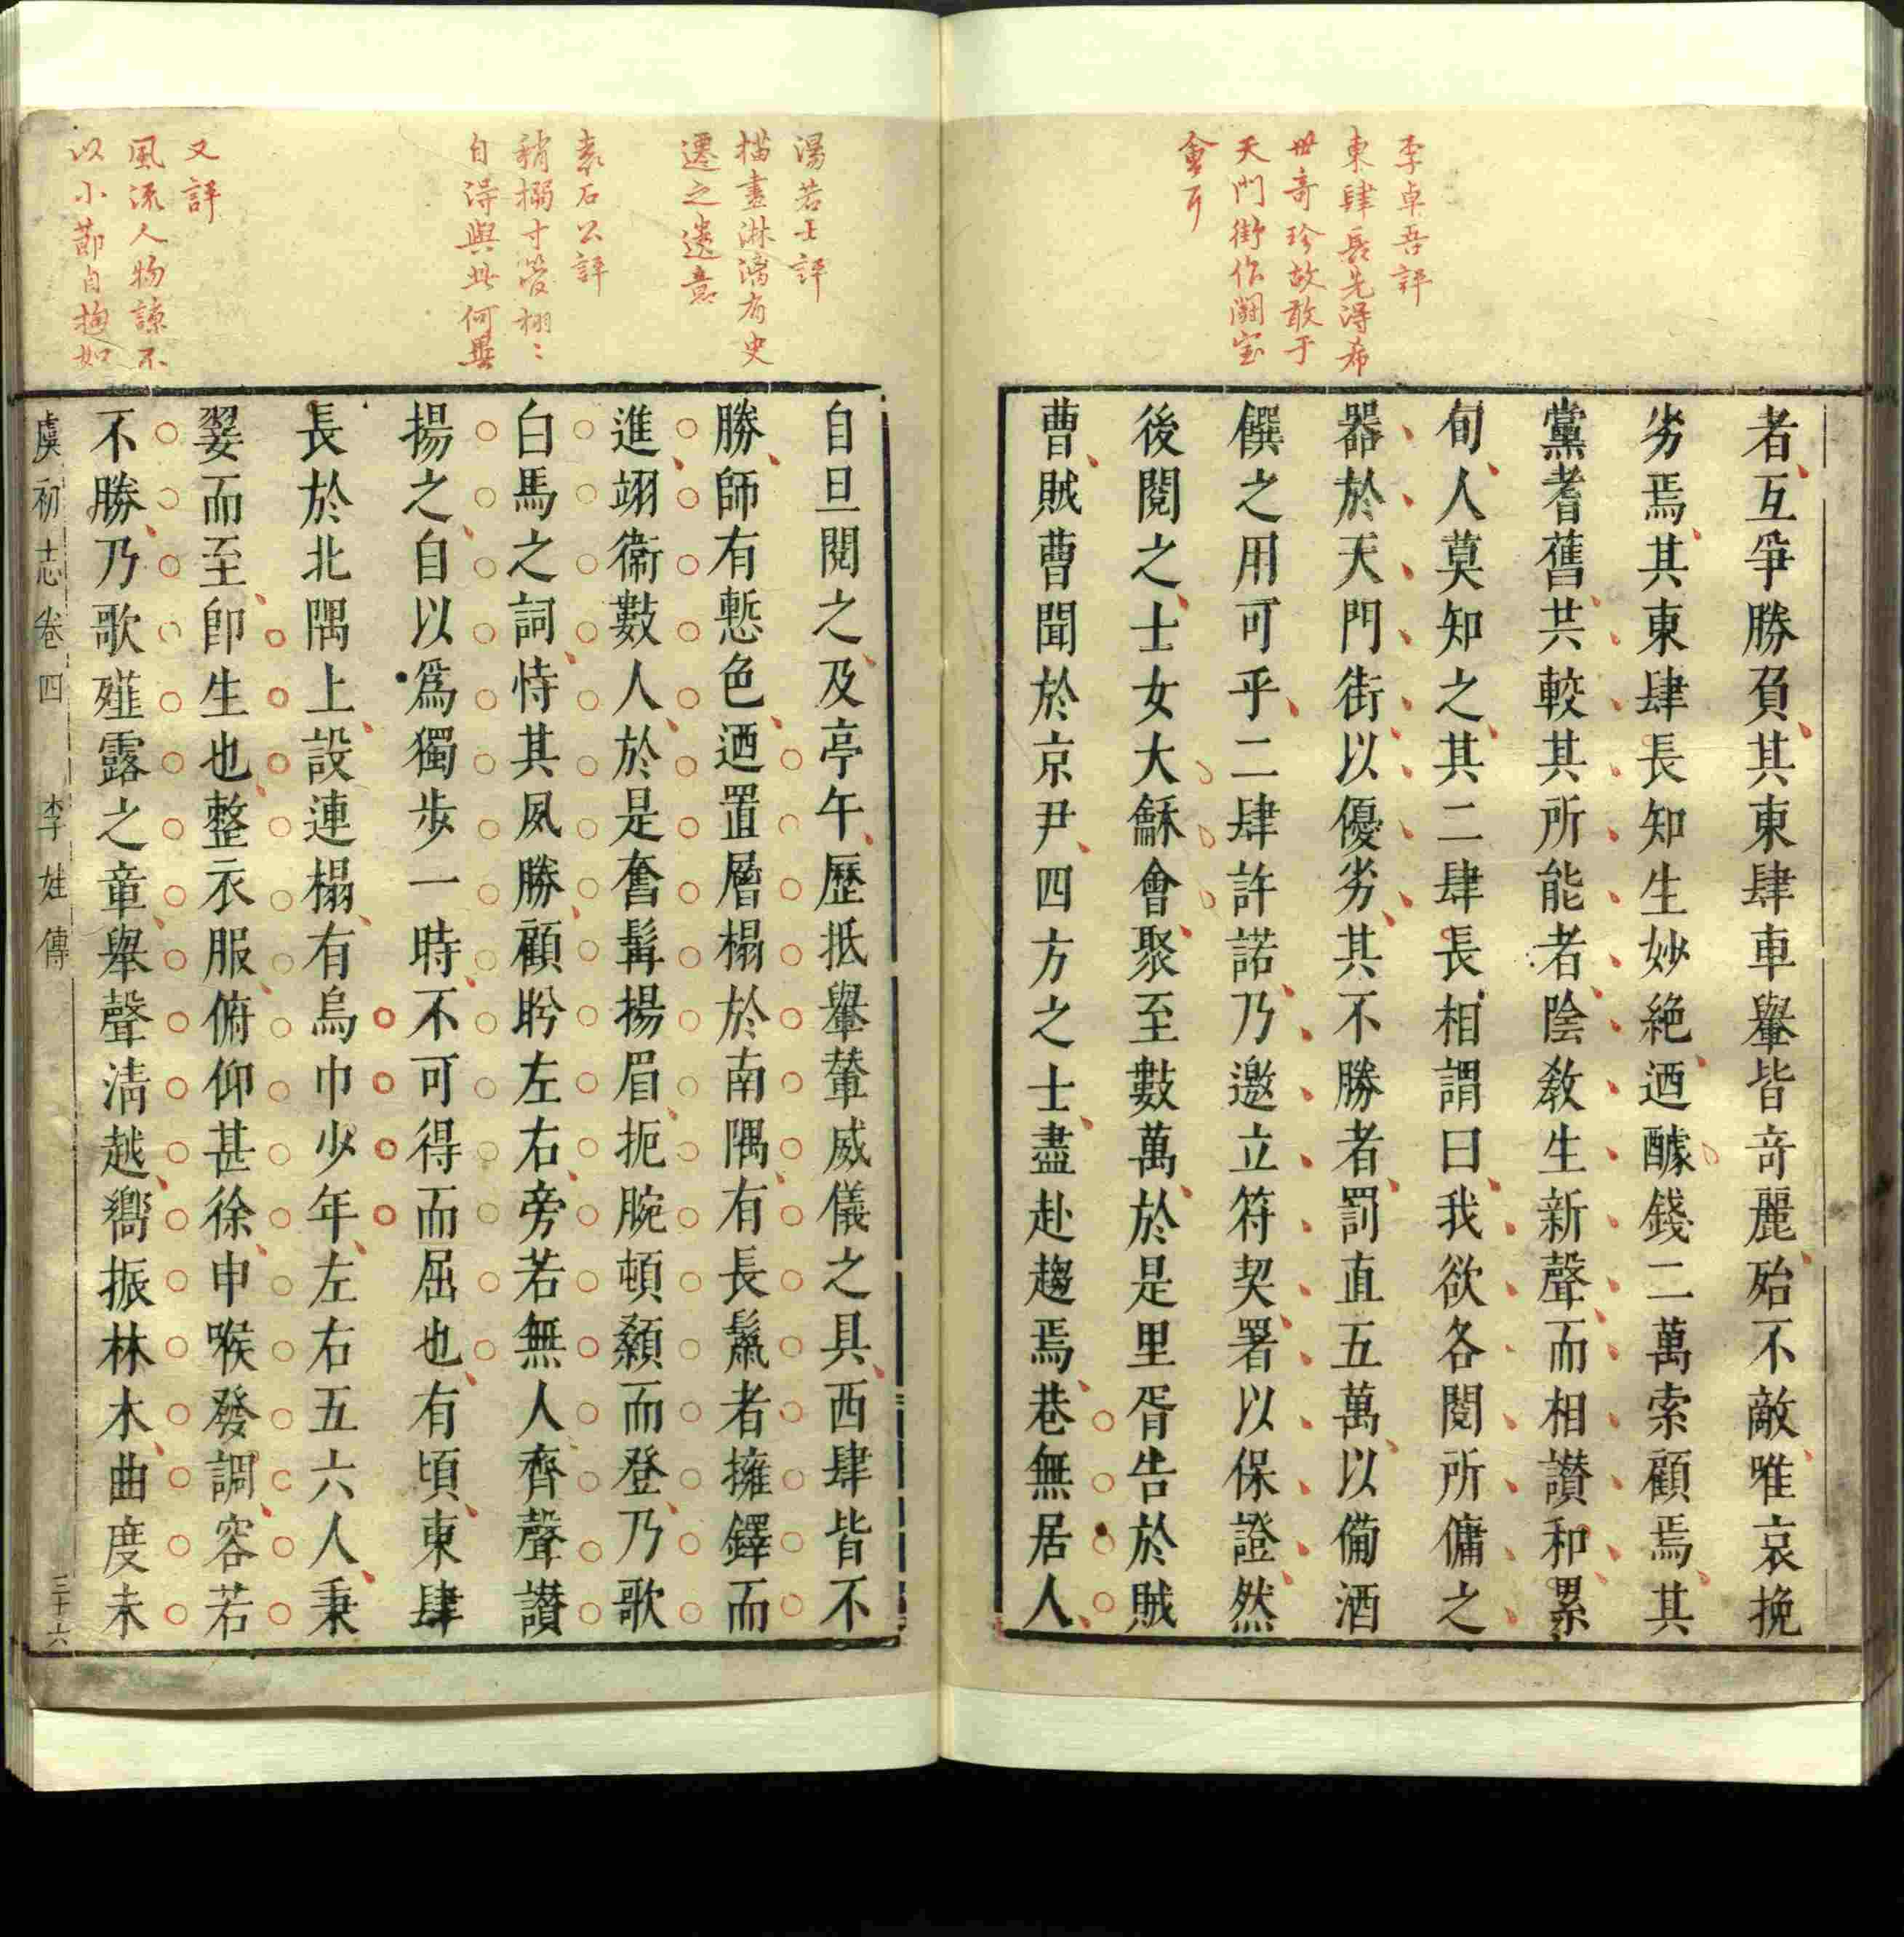 李卓吾評
東肆長先得希
世奇珍故敢于
天門街作鬬宝
會耳
者互爭勝負其東肆車轝皆竒麗殆不敵唯哀挽
劣焉其東肆長知生妙絶迺醵錢二萬索顧焉其
黨耆舊共較其所能者陰敎生新聲而相讃和累
旬人莫知之其二肆長相謂曰我欲各閱所傭之
器於天門街以優劣其不勝者罰直五萬以備酒
饌之用可乎二肆許諾乃邀立符契署以保證然
後閱之士女大龢會聚至數萬於是里胥告於賊
曹賊曹聞於京尹四方之士盡赴趨焉巷無居人
湯若士評
描畫淋漓有史
遷之遺意
袁石公評
稍搦寸管栩〻
自得與此何異
又評
風流人物諒不
以小節自拘如
自旦閱之及亭午歷抵轝輦威儀之具西肆皆不
勝師有慙色迺置層榻於南隅有長鬣者擁鐸而
進翊衞數人於是奮髯揚眉扼腕頓顙而登乃歌
白馬之詞恃其夙勝顧盻左右旁若無人齊聲讃
揚之自以爲獨步一時不可得而屈也有頃東肆
長於北隅上設連榻有烏巾少年左右五六人秉
翣而至卽生也整衣服俯仰甚徐申喉發調容若
不勝乃歌薤露之章舉聲淸越嚮振林木曲度未
虞初志卷四 李娃傳 三十六